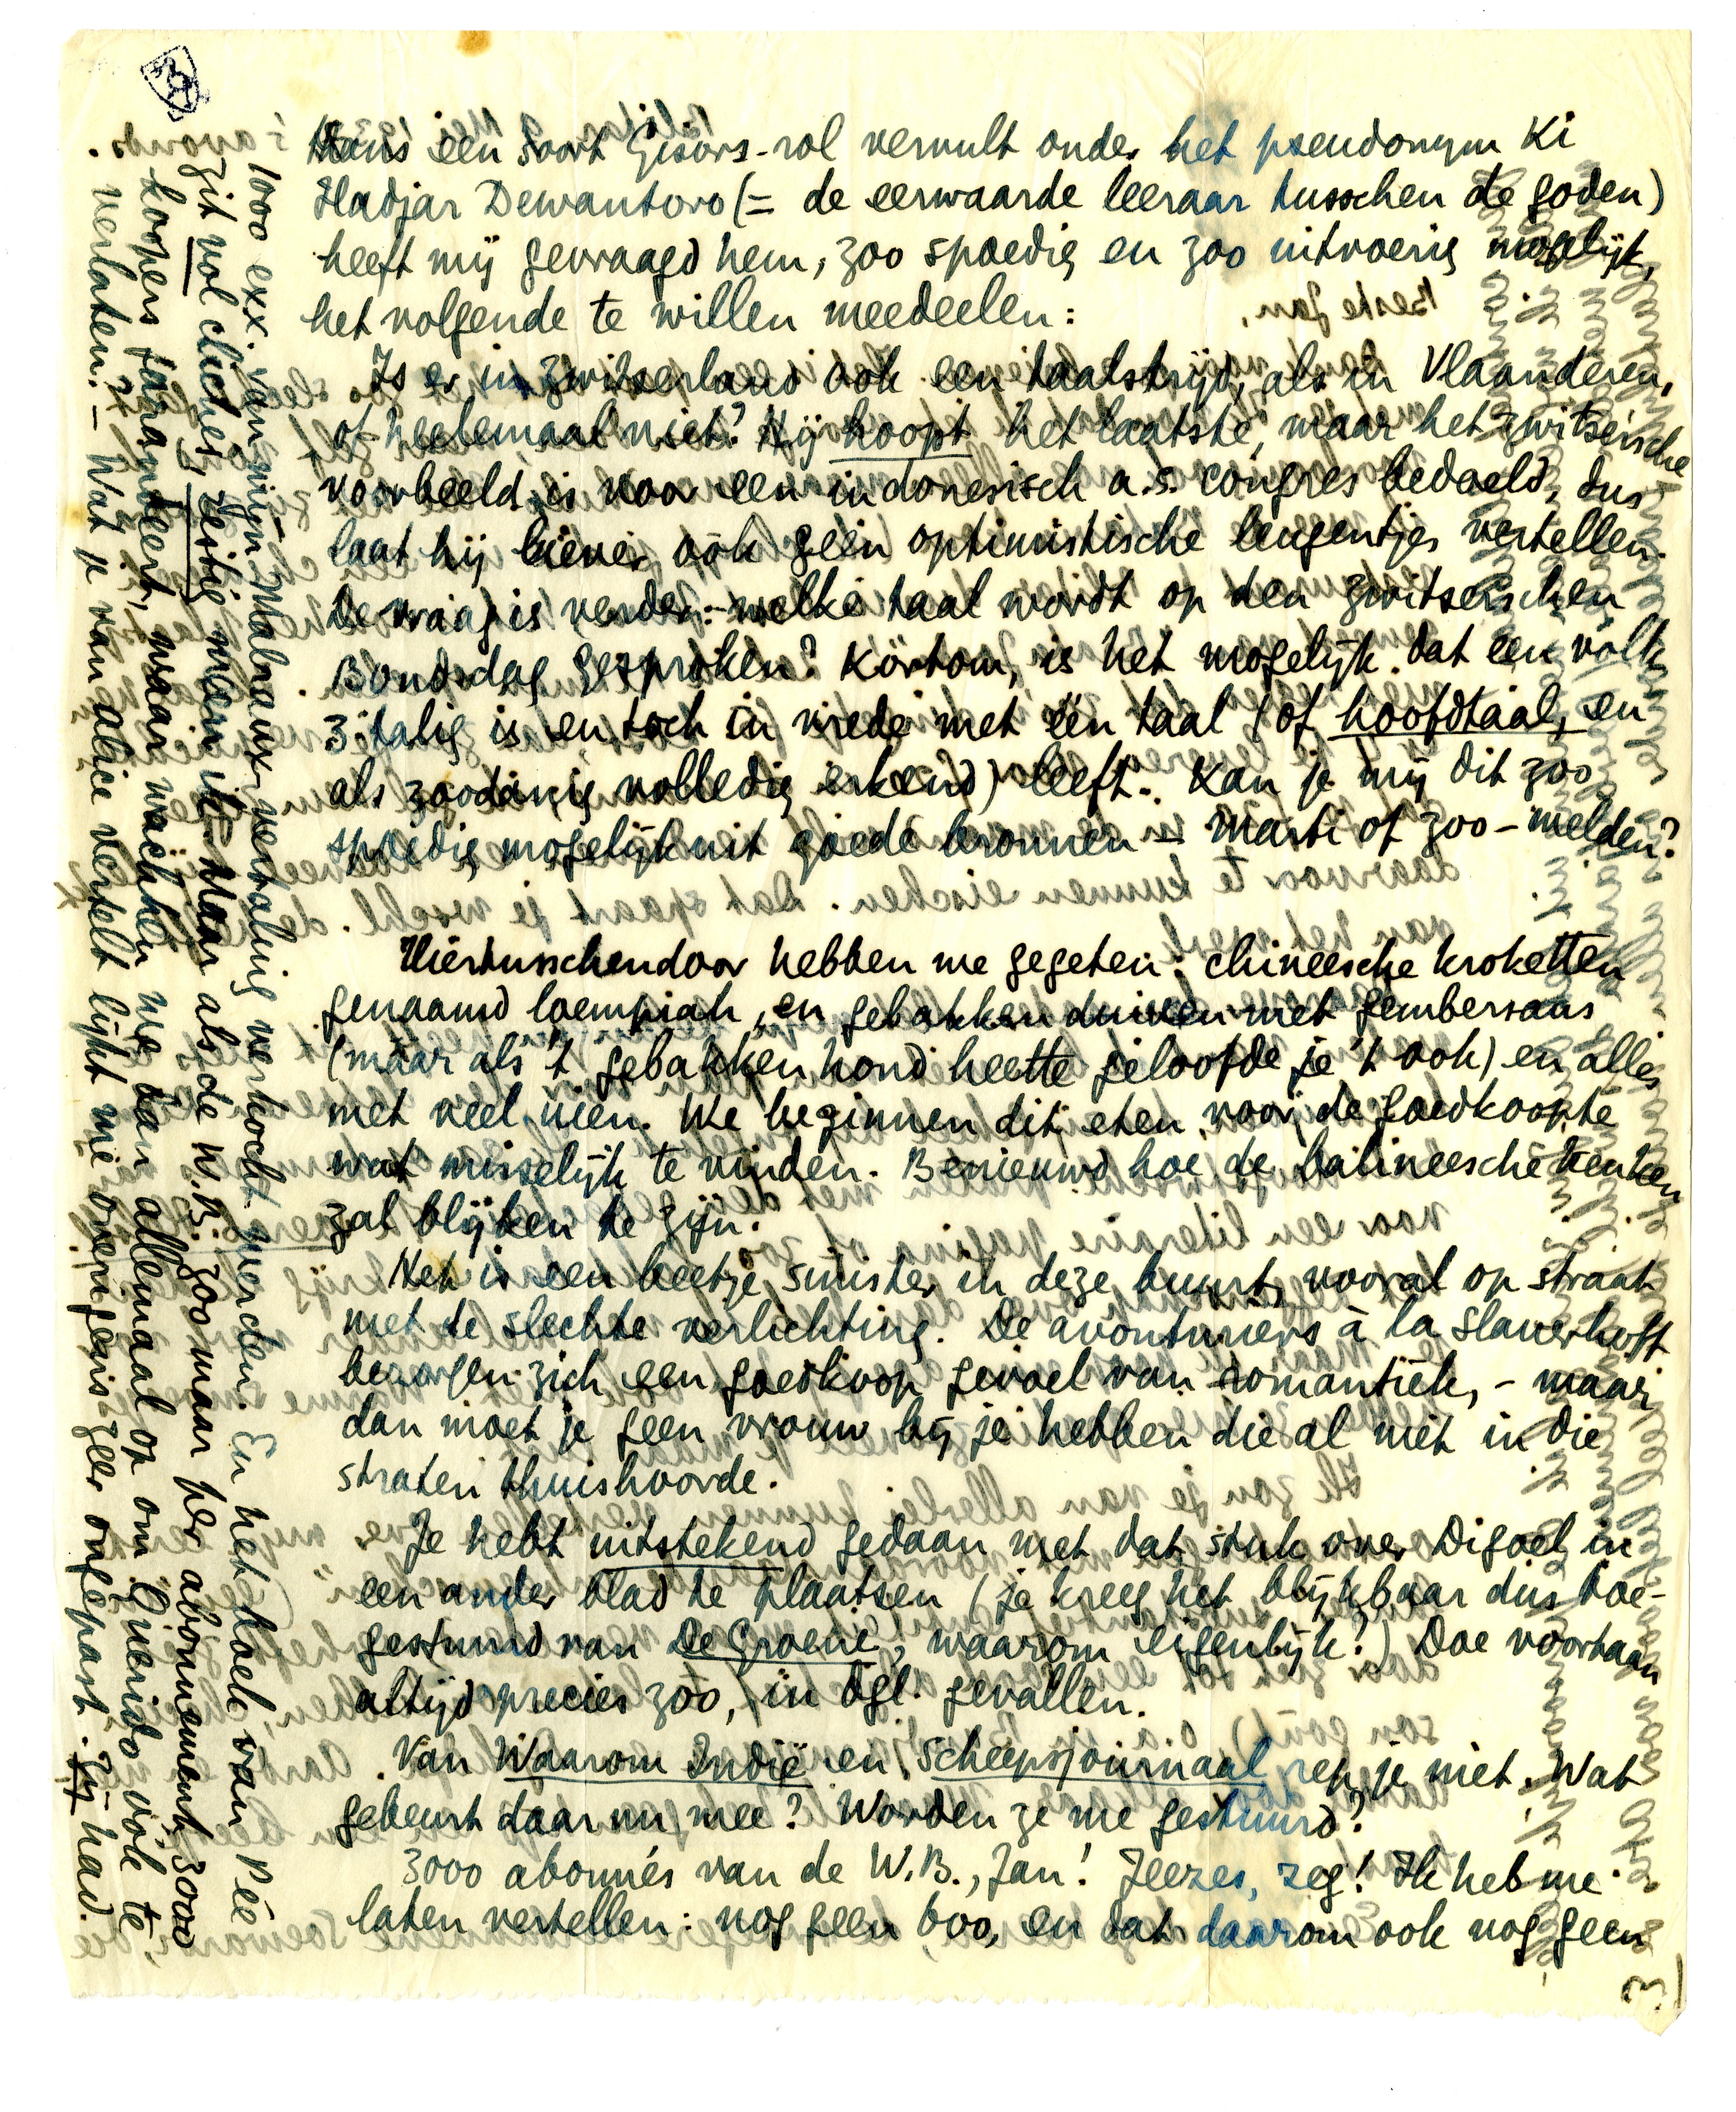 thans een soort Gisors-rol vervult onder het pseudonym Ki
Hadjar Dewantoro (= de eerwaarde leeraar tusschen de goden)
heeft mij gevraagd hem, zoo spoedig en zoo uitvoerig mogelijk,
het volgende te willen meedeelen:
Is er in Zwitserland ook een taalstrijd, als in Vlaanderen,
of heelemaal niet? Hij hoopt het laatste, maar het zwitsersche
voorbeeld is voor een indonesisch a.s. congres bedoeld, dus
laat hij liever ook geen optimistische leugentjes vertellen.
De vraag is verder: welke taal wordt op den zwitserschen
Bondsdag gesproken? Kortom, is het mogelijk dat een volk
3-talig is en toch in vrede met één taal (of hoofdtaal, en
als zoodanig volledig erkend) leeft. Kan je mij dit zoo
spoedig mogelijk uit goede bronnen – Marti of zoo – melden?
Hiertusschendoor hebben we gegeten: chineesche kroketten
genaamd loempiah, en gebakken duiven met gembersaus
(maar als 't gebakken hond heette geloofde je 't ook) en alles
met veel uien. We beginnen dit eten, voor de goedkoopte
wat misselijk te vinden. Benieuwd hoe de balineesche keuken
zal blijken te zijn.
Het is een beetje sinister in deze buurt, vooral op straat
met de slechte verlichting. De avonturiers à la Slauerhoff
bezorgen zich een goedkoop gevoel van romantiek, – maar
dan moet je geen vrouw bij je hebben die al niet in die
straten thuishoorde.
Je hebt uitstekend gedaan met dat stuk over Digoel in
een ander blad te plaatsen (je kreeg het blijkbaar dus toe-
gestuurd van De Groene, waarom eigenlijk?) Doe voortaan
altijd precies zóó, in dgl. gevallen.
Van Waarom Indië en Scheepsjournaal rep je niet. Wat
gebeurt daar nu mee? Worden ze me gestuurd?
3000 abonnés van de W.B., Jan! Jeezes, zeg! Ik heb me
laten vertellen: nog geen 600, en dat daarom ook nog geen
1000 exx. van mijn Malraux-vertaling verkocht werden. En het boek van Pée
zit vol cliché's, zestig meen ik. Maar als de W.B. zoo maar per abonnement 3000
koopers garandeert, waar wachten we dan allemaal op om Querido vóór te
verlaten. – Wat je van Alice vertelt lijkt me overigens zeer ongepast. Zij had
3)